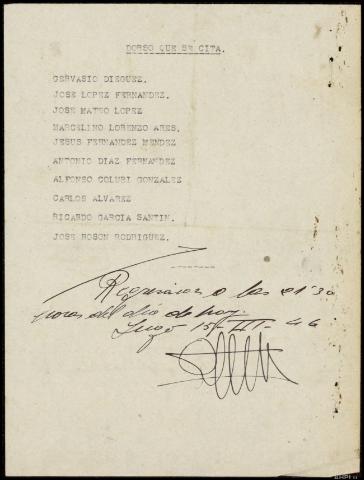 DORSO QUE SE CITA.
GERVASIO DIEGUEZ.
JOSE LOPEZ FERNANDEZ.
JOSE MATEO LOPEZ
MARCELINO LORENZO ARES.
JESUS FERNANDEZ MENDEZ
ANTONIO DIAZ FERNANDEZ
ALFONSO COLUBI GONZALEZ
CARLOS ALVAREZ
RICARDO GARCIA SANTIN.
JOSE ROSON RODRIGUEZ.
Regresaron a las 21'30
horas del día de hoy.
Lugo 15-III-46
AHPLU